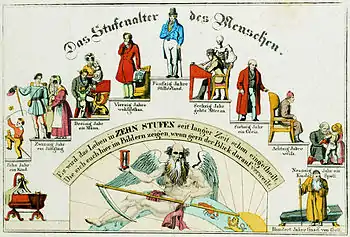 Das Stufenalter des Menschen.
Zehn Jahr
ein Kind.
Zwanzig Jahr
ein Jüngling
Dreissig Jahr
ein Mann.
Vierzig Jahre
wohlgethan.
Fünfzig Jahre
Stillestand.
Sechzig Jahr
gehts Alter an.
Siebzig Jahr
ein Greis.
Achtzig Jahr
weiß.
Neunzig Jahr ein
Kinder Spott
Hundert Jahre Gnad von Gott.
Es wird das Leben in ZEHN STUFEN seit langer Zeit schon eingetheilt
Die sich auch hier im Bildern zeigen, wenn gern der Blick darauf verweilt.